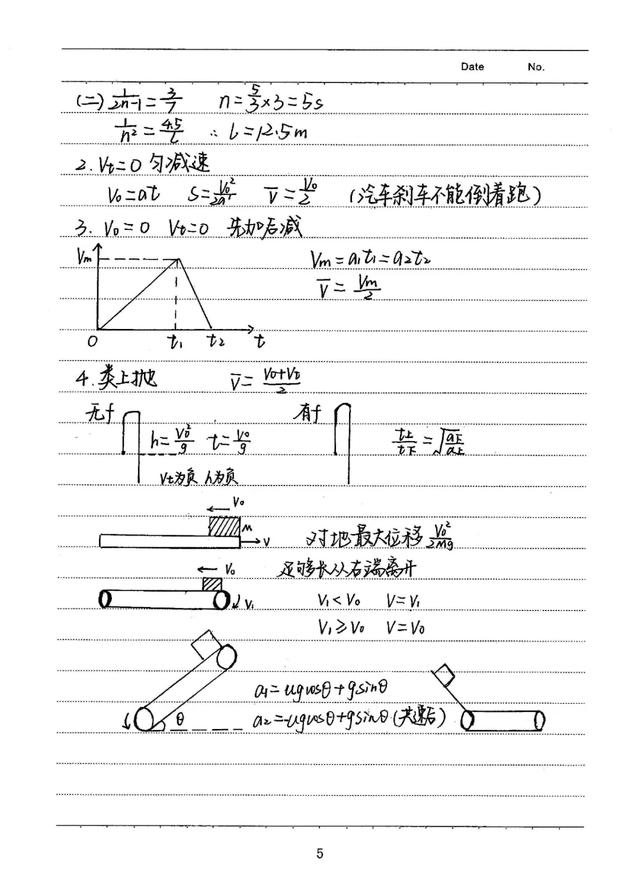 Date No.
(二) 1/(2n-1) = 3/7 n = 5/3 × 3 = 5s
1/n² = 4.5/L ∴ L = 12.5m
2. Vt = 0 匀减速
V₀ = at S = V₀²/2a V̅ = V₀/2 (汽车刹车不能倒着跑)
3. V₀ = 0 Vt = 0 先加后减
Vm
Vm = a₁t₁ = a₂t₂
V̅ = Vm/2
0 t₁ t₂ t
4. 类上抛 V̅ = (V₀+Vt)/2
无f 有f
h = V₀²/g t = V₀/g t上/t下 = √(a下/a上)
Vt为负 h为负
V₀
M
V
对地最大位移 V₀²/2Mg
V₀
足够长从右端离开
V₁
V₁ < V₀ V = V₁
V₁ ≥ V₀ V = V₀
a₁ = ugcosθ + gsinθ
θ
a₂ = -ugcosθ + gsinθ (共速后)
5